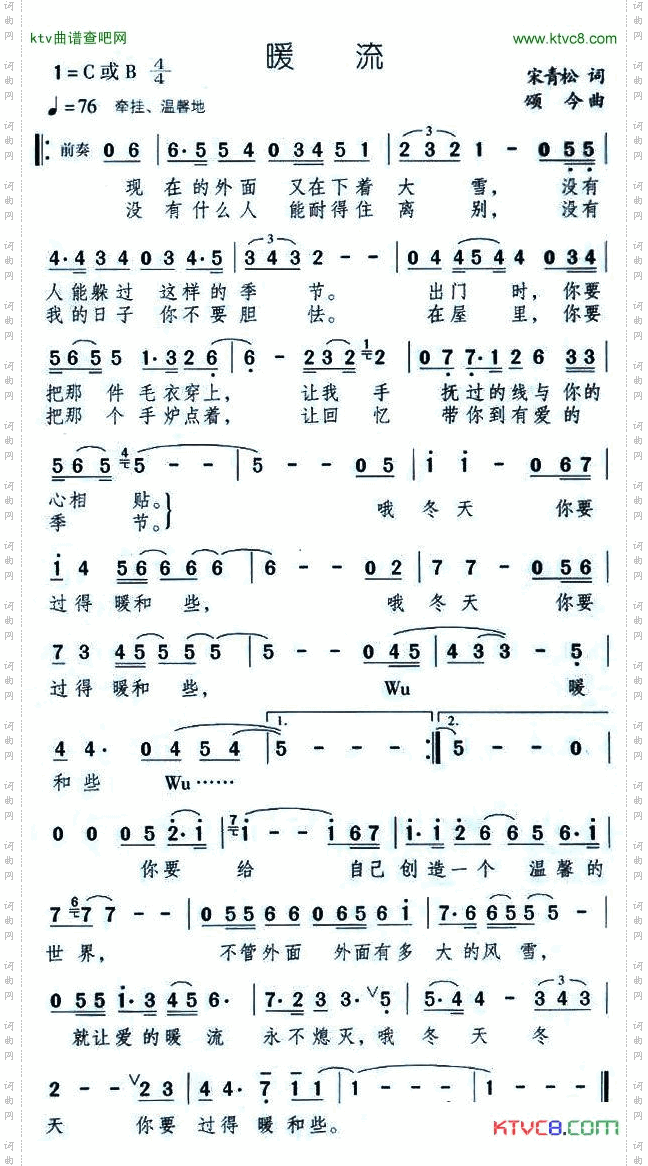 ktv曲谱查吧网
www.ktvc8.com
暖 流
1=C或B 4/4
宋青松 词
♩=76 牵挂、温馨地
颂 今 曲
前奏 0 6 | 6· 5 5 4 0 3 4 5 1 | 2 3 2 1 1 - 0 5 5 |
现 在 的 外 面 又 在 下 着 大 雪， 没有
没 有 什么 人 能耐得住 离 别， 没有
4· 4 3 4 0 3 4· 5 | 3 4 3 2 - - | 0 4 4 5 4 4 0 3 4 |
人能躲过 这样的季 节。 出门 时，你要
我的日子 你不要胆 怯。 在屋 里，你要
5 6 5 5 1· 3 2 6 | 6 - - 2 3 2 1 2 | 0 7 7· 1 2 6 3 3 |
把那 件毛衣穿上， 让我 手 抚过的线与你的
把那 个手炉点着， 让回 忆 带你到有爱的
5 6 5 4 5 - - | 5 - - 0 5 | i i - 0 6 7 |
心相 贴。
哦 冬 天 你要
季 节。
i 4 5 6 6 6 6 | 6 - - 0 2 | 7 7 - 0 5 6 |
过得 暖和 些， 哦 冬 天 你要
7 3 4 5 5 5 5 | 5 - - 0 4 5 | 4 3 3 - 5 |
过得 暖和 些， Wu 暖
1. 2.
4 4· 0 4 5 4 | 5 - - - :| 5 - - 0 |
和些 Wu……
0 0 0 5 2· i | 7 i - - i 6 7 | i· i 2 6 6 5 6· i |
你要 给 自己 创造一个 温馨的
7 6 7 7 - - | 0 5 5 6 6 0 6 5 6 i | 7· 6 6 5 5 5 - |
世 界， 不管外面 外面有多 大的风 雪，
0 5 5 i· 3 4 5 6· | 7· 2 3 3 · V 5 | 5· 4 4 - 3 4 3 |
就让爱的暖 流 永不熄灭，哦 冬 天 冬
2 - - V 2 3 | 4 4· 7 1 1 | 1 - - - | 1 - - - ‖
天 你要 过得 暖 和些。
KTVC8.com
词曲网